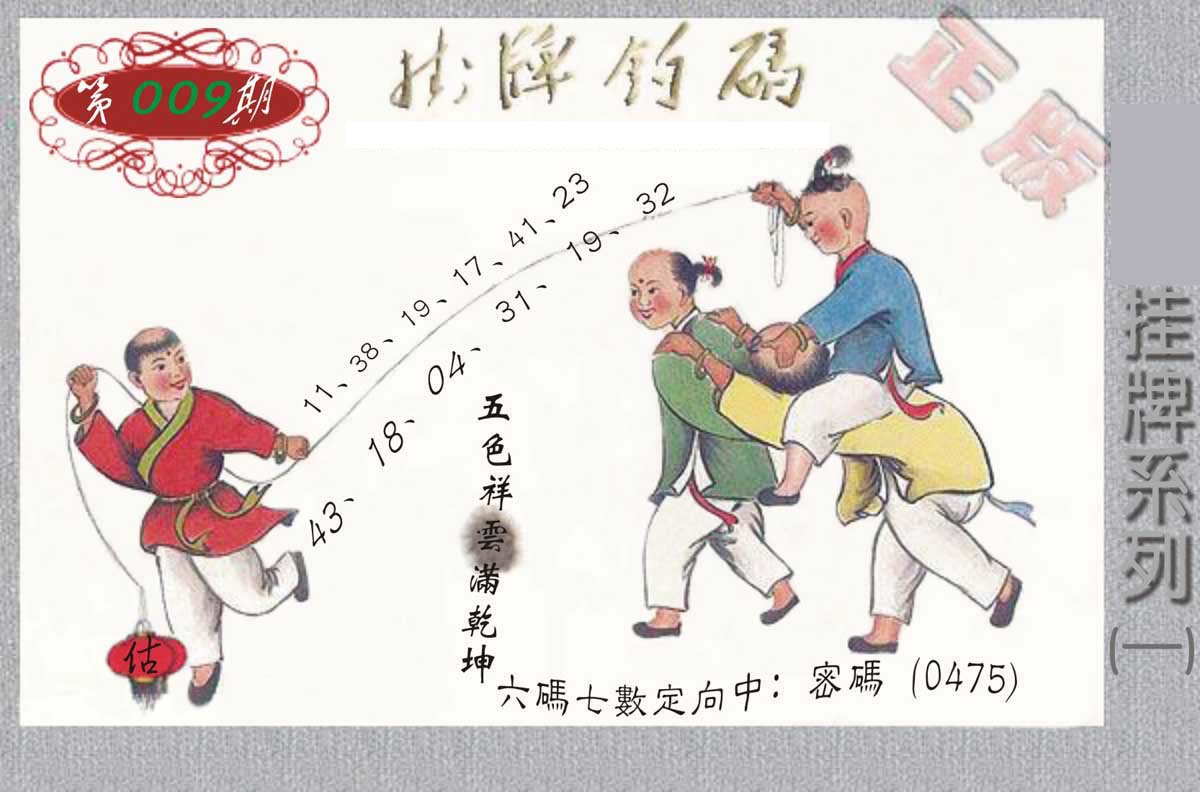 第009期
掛牌钓碼
正版
11、38、19、17、41、23
43、18、04、31、19、32
五色祥雲滿乾坤
估
六碼七數定向中：密碼(0475)
挂牌系列(一)